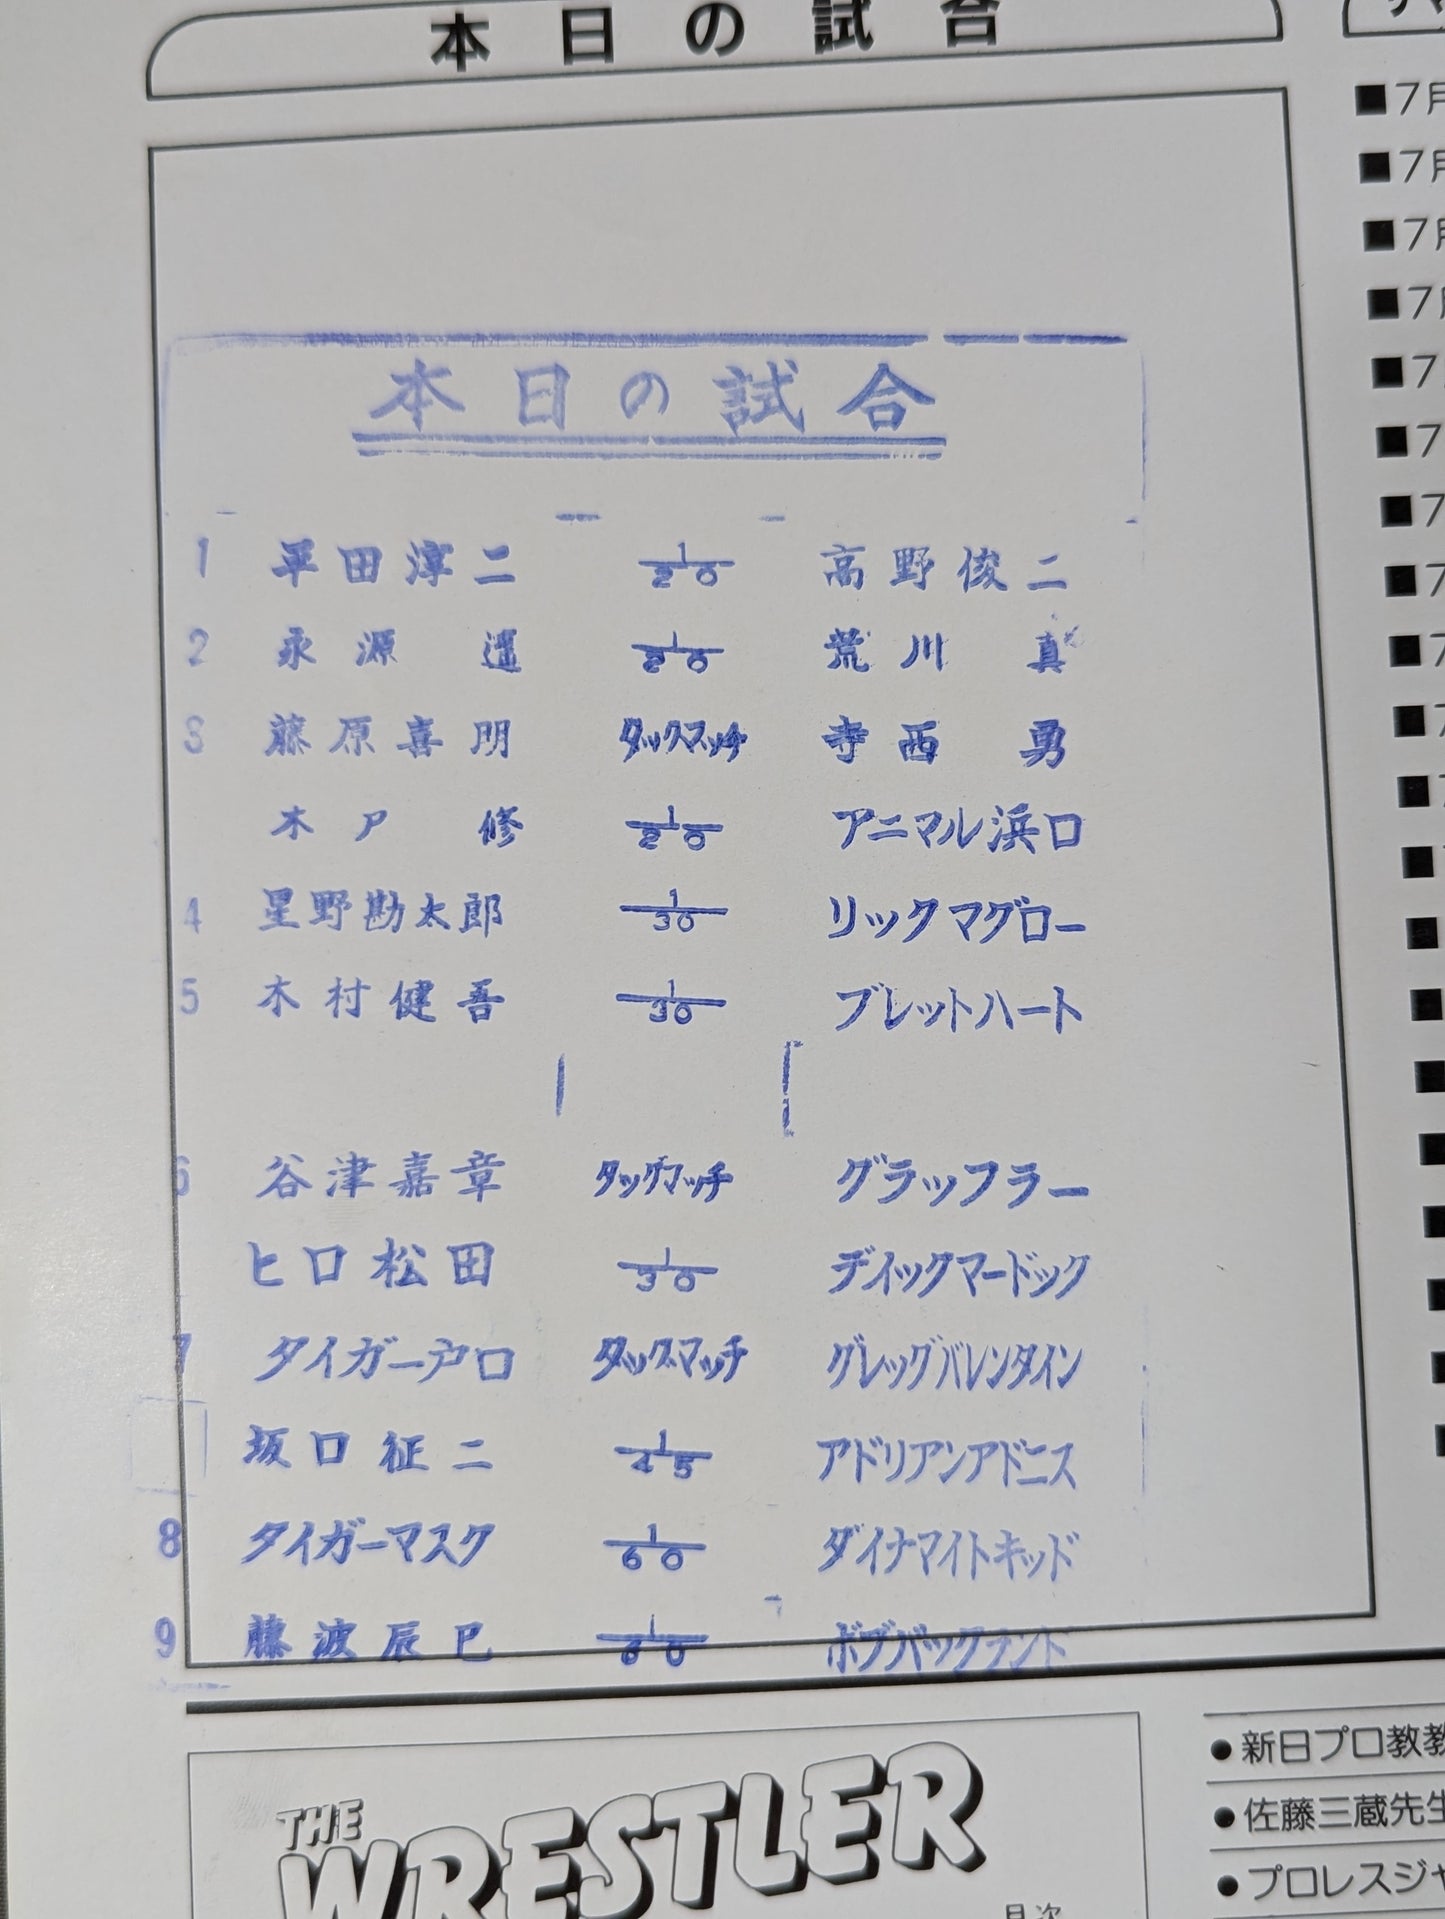 本日の試合
本日の試合
1 平田淳二 1/20 高野俊二
2 永源遥 1/20 荒川真
3 藤原喜明 タッグマッチ 寺西勇
木戸修 1/20 アニマル浜口
4 星野勘太郎 1/30 リックマグロー
5 木村健吾 1/30 ブレットハート
6 谷津嘉章 タッグマッチ グラッフラー
ヒロ松田 1/30 デイックマードック
7 タイガー戸口 タッグマッチ グレッグバレンタイン
坂口征二 1/45 アドリアンアドニス
8 タイガーマスク 1/60 ダイナマイトキッド
9 藤波辰巳 1/60 ボブバックランド
■7月
■7月
■7月
■7月
■7
■7
■7
■7
■7
THE
WRESTLER
目次
●新日プロ教
●佐藤三蔵先生
●プロレスジャ